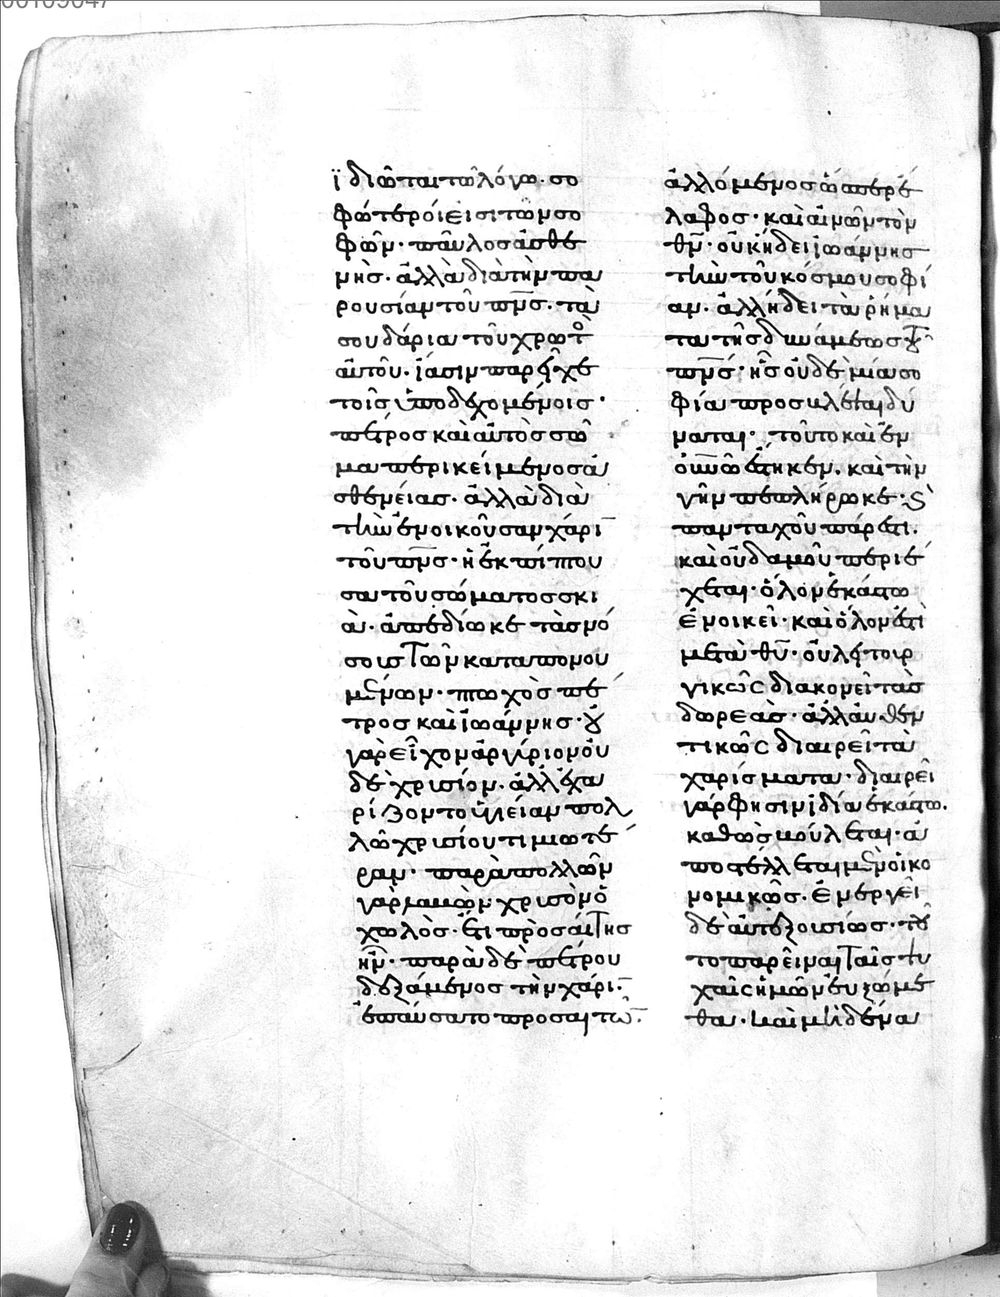 ἰδιῶται τῶ λόγω· σο
φώτεροί εἰσι τῶν σο
φῶν· παῦλος ἀσθε
νὴς· ἀλλὰ διὰ τὴν πα
ρουσίαν τοῦ πνς· τὰ
σουδάρια τοῦ χρωτ
αὐτοῦ· ἴασιν παρεῖχε
τοῖς ὑποδεχομένοις·
πέτρος καὶ αὐτὸς σῶ
μα περικείμενος ἀ
σθενείας· ἀλλὰ διὰ
τὴν ἐνοικοῦσαν χάρι
τοῦ πνς· ἡ ἐκπίπτου
σα τοῦ σώματος σκι
ὰ· ἀπεδίωκε τὰς νό
σους τῶν καταπονου
μένων· πτωχὸς πέ
τρος καὶ ἰωάννης· οὐ
γὰρ εἶχον ἀργύριον οὐ
δὲ χρυσίον· ἀλλ' ἐχα
ρίζοντο ὑγιείαν πολ
λῶ χρυσίου τιμιωτέ
ραν· παρὰ πολλῶν
γὰρ λαμβὼν χρυσὸν ὁ
χωλὸς· ἔτι προσαίτης
ἦν· παρὰ δὲ πέτρου
δεξάμενος τὴν χάριν·
ἐπαύσατο προσαιτῶν·
ἀλλόμενος ὥσπερ ἔ
λαφος· καὶ αἰνῶν τὸν
θν· οὐκ ἤδει ἰωάννης
τὴν τοῦ κόσμου σοφί
αν· ἀλλ' ἤδει τὰ ῥήμα
τα τῆς δυνάμεως τοῦ
πνς· ἧς οὐδεμία σο
φία προσκλεῖσαι δύ
ναται· τοῦτο καὶ ἐν
οὐνῶ ἕστηκεν· καὶ τὴν
γῆν πεπλήρωκε· καὶ
πανταχοῦ πάρεστι·
καὶ οὐδαμοῦ περιέ
χεται· ὅλον ἑκάστω
ἐνοικεῖ· καὶ ὅλον ἐστὶ
μετὰ θυ· οὐ λειτουρ
γικῶς διακονεῖ τὰς
δωρεὰς· ἀλλ' αὐθεν
τικῶς διαιρεῖ τὰ
χαρίσματα· διαιρεῖ
γάρ φησιν ἰδία ἑκάστω·
καθὼς βούλεται· ἀ
ποστέλλεται μὲν οἰκο
νομικῶς· ἐνεργεῖ
δὲ αὐτεξουσίως· τοῦ
το παρεῖναι ταῖς ψυ
χαῖς ἡμῶν εὐξώμε
θα· καὶ μηδένα